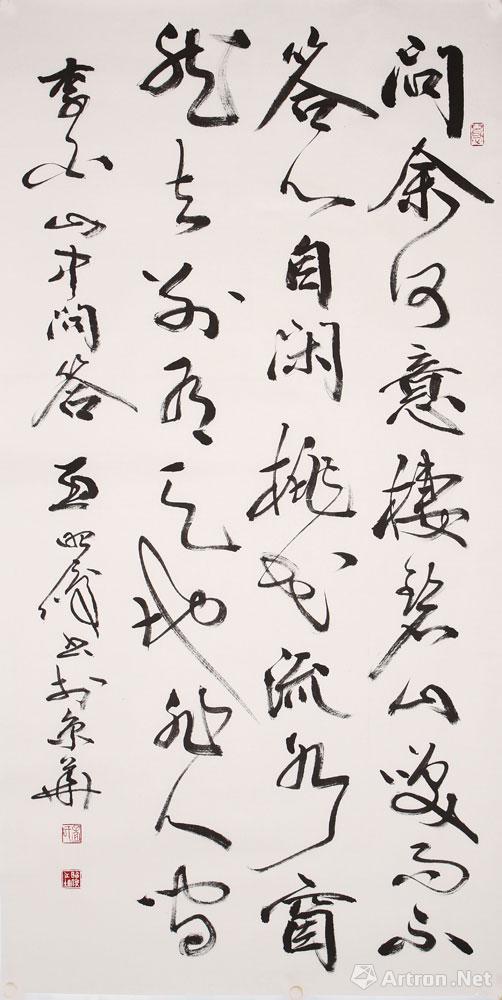 问余何意棲碧山咲而不
答心自闲桃花流水窅
然去别有天地非人间
李白山中问答 书於京華
Artron.Net